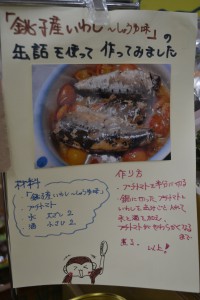 「銚子産いわし〜しょうゆ味」の
缶詰を使って作ってみました
材料
「銚子産いわし〜しょうゆ味」
・プチトマト
水 大さじ2
酒 小さじ2
作り方
・プチトマトを半分に切る
・鍋に切ったプチトマトと
いわしを缶汁ごと入れて
水と酒を加え、
プチトマトがやわらかくなる
まで
煮る。 以上!